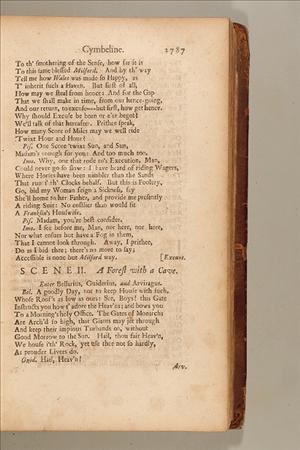 Cymbeline. 2787
To th' smothering of the Sense, how far it is
To this same blessed Milford. And by th' way
Tell me how Wales was made so Happy, as
T' inherit such a Haven. But first of all,
How may we steal from hence: And for the Gap
That we shall make in time, from our hence-going,
And our return, to excuse—but first, how get hence.
Why should Excuse be born or e'er begot?
We'll talk of that hereafter. Prithee speak,
How many Score of Miles may we well ride
'Twixt Hour and Hour?
Pis. One Score 'twixt Sun, and Sun,
Madam's enough for you: And too much too.
Imo. Why, one that rode to's Execution, Man,
Could never go so slow: I have heard of riding Wagers,
Where Horses have been nimbler than the Sands
That run i' th' Clocks behalf. But this is Foolery,
Go, bid my Woman feign a Sickness, say
She'll home to her Father, and provide me presently
A riding Suit: No costlier than would fit
A Franklin's Housewife.
Pis. Madam, you're best consider.
Imo. I see before me, Man, nor here, nor here,
Nor what ensues but have a Fog in them,
That I cannot look through. Away, I prithee,
Do as I bid thee; there's no more to say;
Accessible is none but Milford way. [Exeunt.
SCENE II. A Forest with a Cave.
Enter Bellarius, Guiderius, and Arviragus.
Bel. A goodly Day, not to keep House with such,
Whose Roof's as low as ours: See, Boys! this Gate
Instructs you how t' adore the Heav'ns; and bows you
To a Morning's holy Office. The Gates of Monarchs
Are Arch'd so high, that Giants may jet through
And keep their impious Turbands on, without
Good Morrow to the Sun. Hail, thou fair Heav'n,
We house i'th' Rock, yet use thee not so hardly,
As prouder Livers do.
Guid. Hail, Heav'n!
Arv.